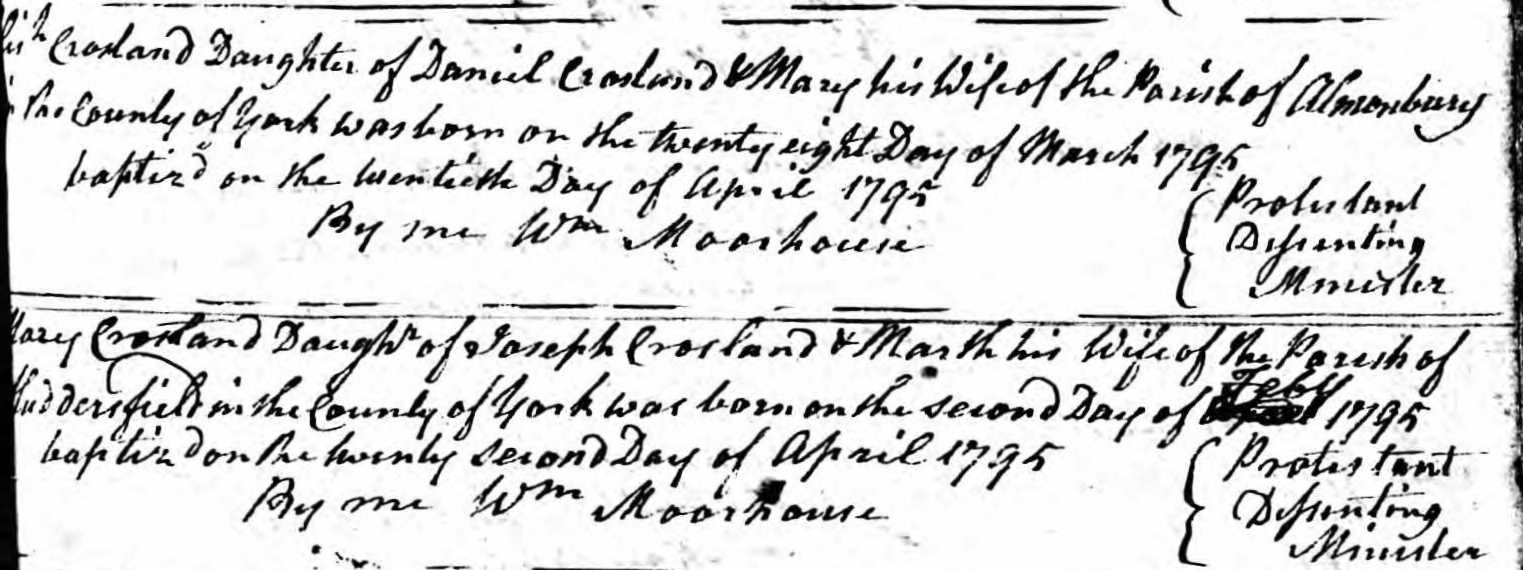 Crosland Daughter of Daniel Crosland & Mary his Wife of the Parish of Almonbury
the County of York was born on the twenty eight Day of March 1795
baptiz'd on the twentieth Day of April 1795
By me Wm Moorhouse
Protestant
Dissenting
Minister
Mary Crosland Daughtr of Joseph Crosland & Marth his Wife of the Parish of
Huddersfield in the County of York was born on the second Day of Feby 1795
baptiz'd on the twenty second Day of April 1795
By me Wm Moorhouse
Protestant
Dissenting
Minister